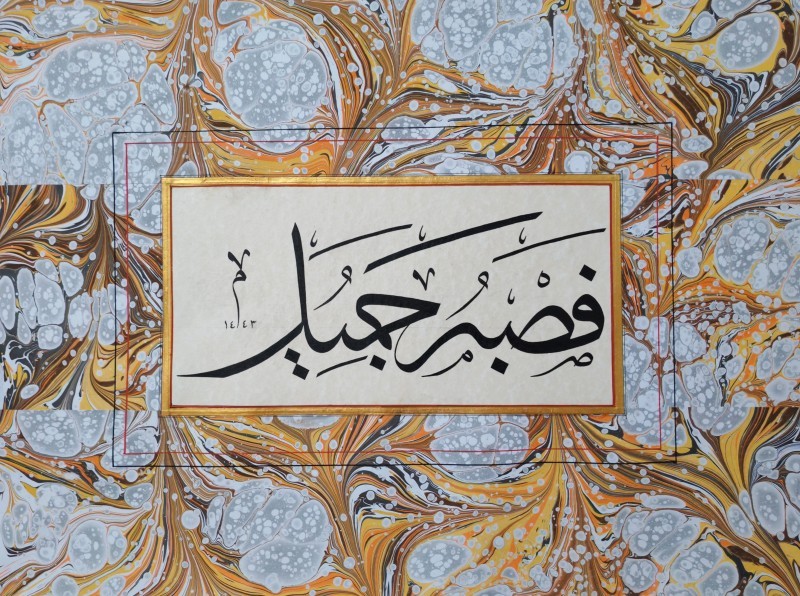 فَصَبْرٌ جَمِيلٌ
م
١٤٤٣